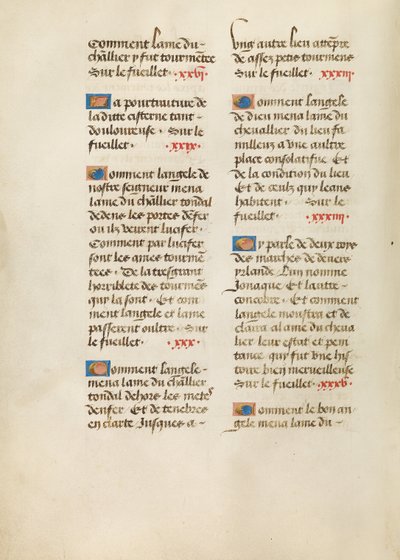 Comment lame du
chãllier y fut tourmẽtee
Sur le fueillet · xxvj
La pourtraiture de
la ditte cisterne tant
douloureuse · Sur le
fueillet · xxix ·
Comment langele de
nostre seigneur mena
lame du chãllier tondal
dedens les portes denfer
ou ilz veirent lucifer ·
Comment par lucifer
sont les ames tourmẽ
tees · De la tresgrant
horriblete des tourmẽs
quy la sont · Et com
ment langele et lame
passerent oultre · Sur
le fueillet · xxx ·
Comment langele
mena lame du chãllier
tondal dehors les mettes
denfer · Et de tenebres
en clarte Jusques a
vng autre lieu attempre
de assez petis tourmens
Sur le fueillet · xxxiij
Comment langele
de dieu mena lame du
cheuallier du lieu fa
milleux a vne aultre
place consolatiue Et
de la condition du lieu
Et de ceulz quy leans
habitent · Sur le
fueillet · xxxiiij
Cy parle de deux roys
des marches de deuers
yrlande Lun nomme
Conaque Et lautre
concobre · Et comment
langele monstra et de
claira a lame du cheua
lier leur estat et peni
tance quy fut vne his
toire bien merueilleuse
Sur le fueillet · xxxv ·
Comment le bon an
gele mena lame du